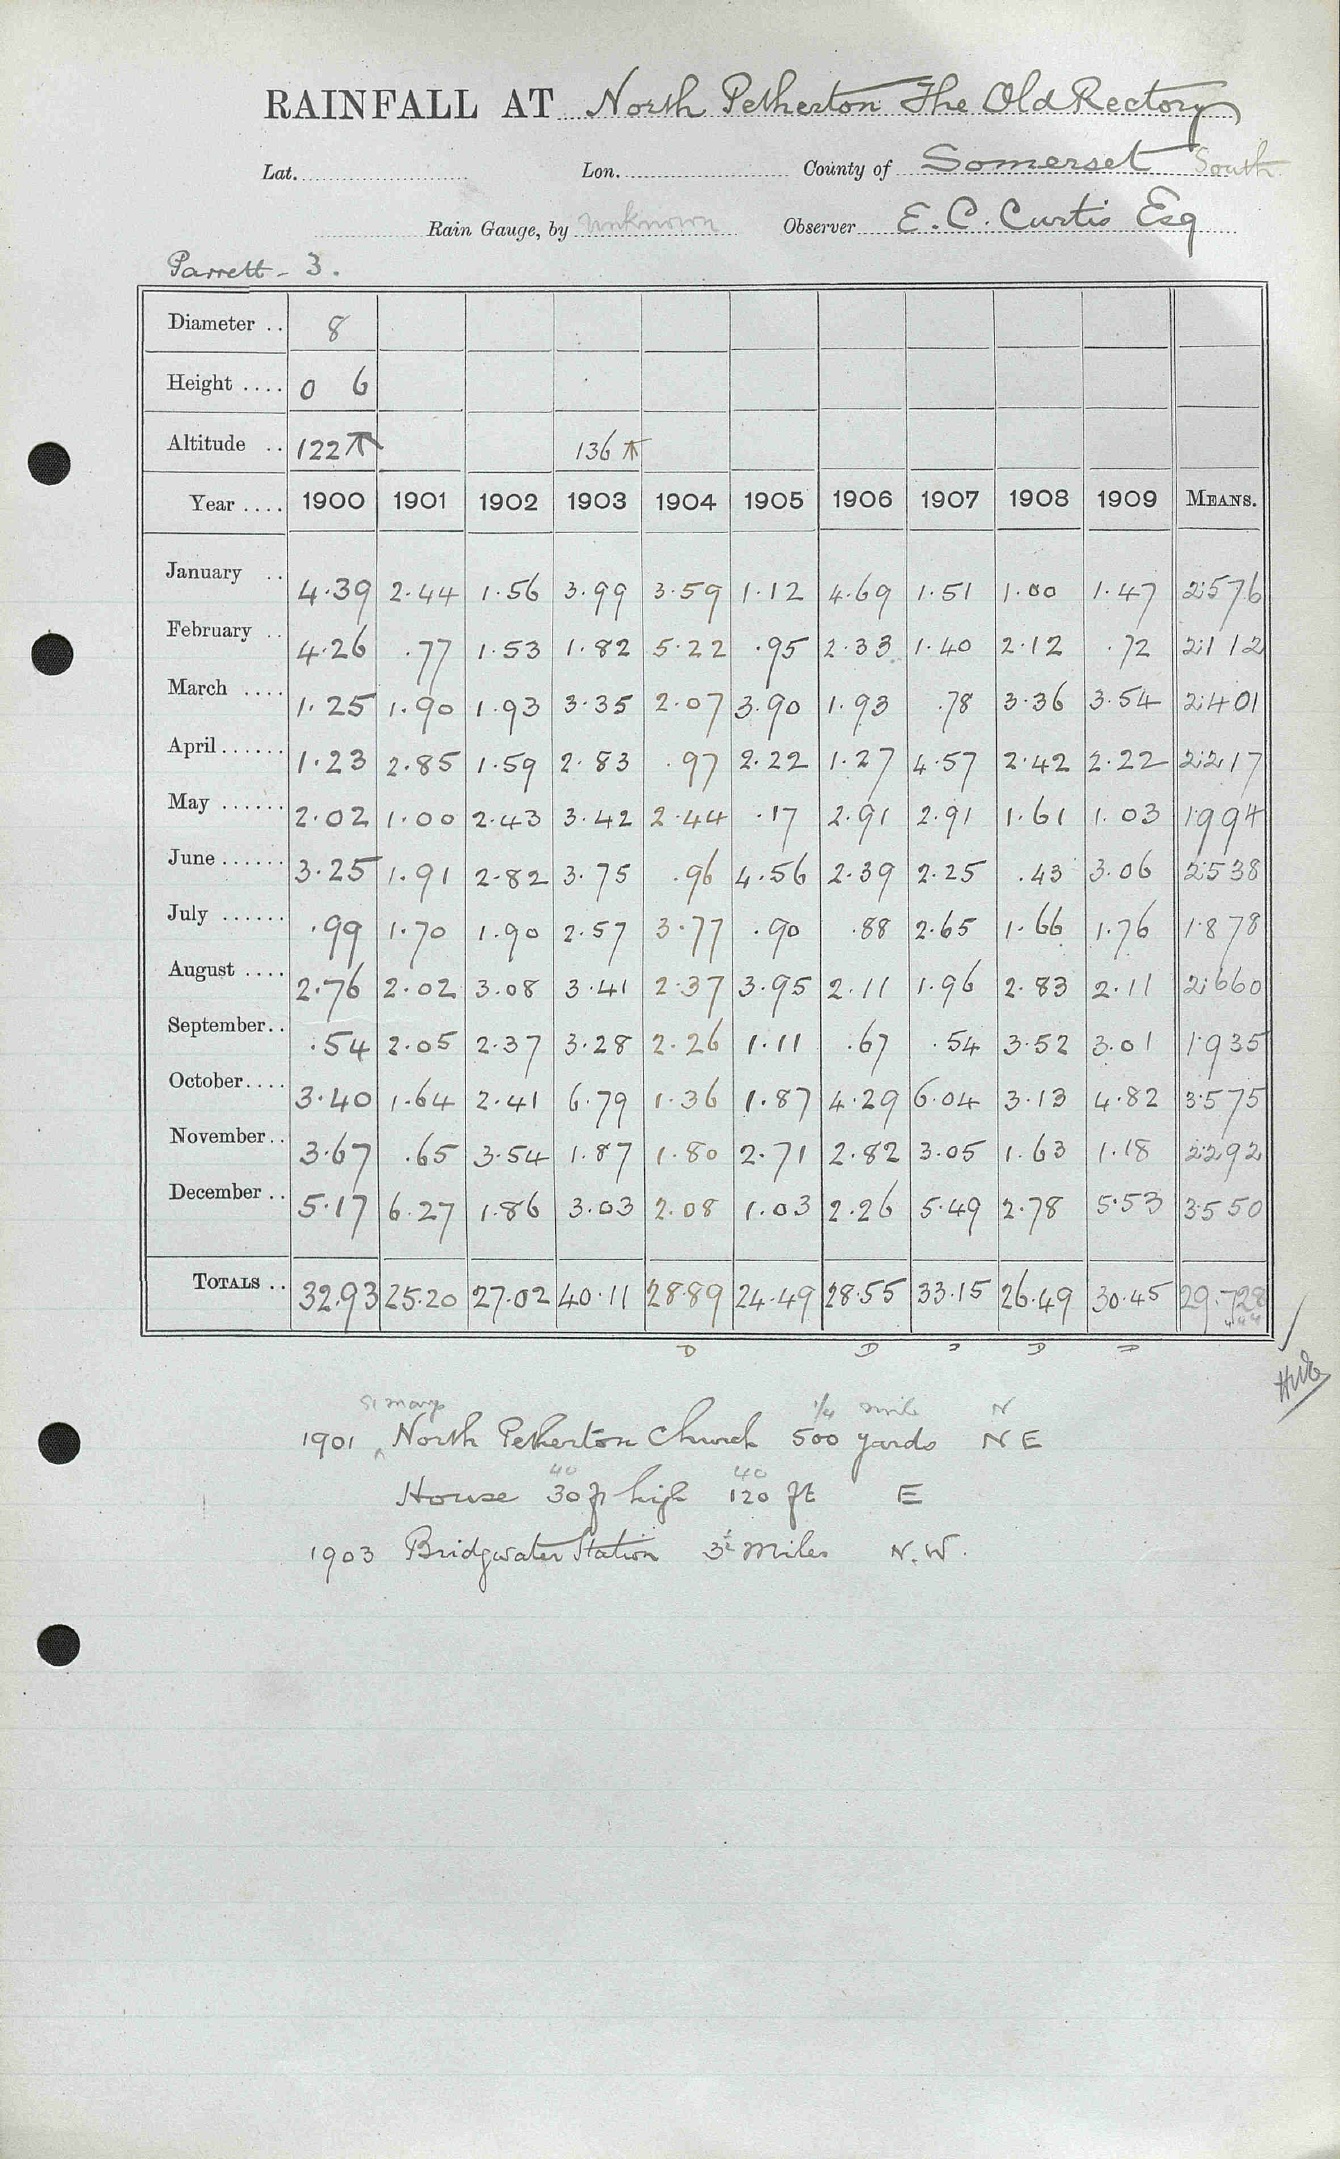 RAINFALL AT North Petherton The Old Rectory
Lat. Lon. County of Somerset South
Rain Gauge, by unknown Observer E. C. Curtis Esq
Parrett - 3.
Diameter .. 8
Height .... 0 6
Altitude .. 122 136
Year .... 1900 1901 1902 1903 1904 1905 1906 1907 1908 1909 MEANS.
January .. 4.39 2.44 1.56 3.99 3.59 1.12 4.69 1.51 1.00 1.47 2.576
February .. 4.26 .77 1.53 1.82 5.22 .95 2.33 1.40 2.12 .72 2.112
March .... 1.25 1.90 1.93 3.35 2.07 3.90 1.93 .78 3.36 3.54 2.401
April ...... 1.23 2.85 1.59 2.83 .97 2.22 1.27 4.57 2.42 2.22 2.217
May ...... 2.02 1.00 2.43 3.42 2.44 .17 2.91 2.91 1.61 1.03 1.994
June ...... 3.25 1.91 2.82 3.75 .96 4.56 2.39 2.25 .43 3.06 2.538
July ...... .99 1.70 1.90 2.57 3.77 .90 .88 2.65 1.66 1.76 1.878
August .... 2.76 2.02 3.08 3.41 2.37 3.95 2.11 1.96 2.83 2.11 2.660
September .. .54 2.05 2.37 3.28 2.26 1.11 .67 .54 3.52 3.01 1.935
October .... 3.40 1.64 2.41 6.79 1.36 1.87 4.29 6.04 3.13 4.82 3.575
November .. 3.67 .65 3.54 1.87 1.80 2.71 2.82 3.05 1.63 1.18 2.292
December .. 5.17 6.27 1.86 3.03 2.08 1.03 2.26 5.49 2.78 5.53 3.550
TOTALS .. 32.93 25.20 27.02 40.11 28.89 24.49 28.55 33.15 26.49 30.45 29.728
D D D D D
St Marys 1/4 mile N
1901 North Petherton Church 500 yards NE
40 40
House 30 ft high 120 ft E
1903 Bridgwater Station 3½ miles N.W.